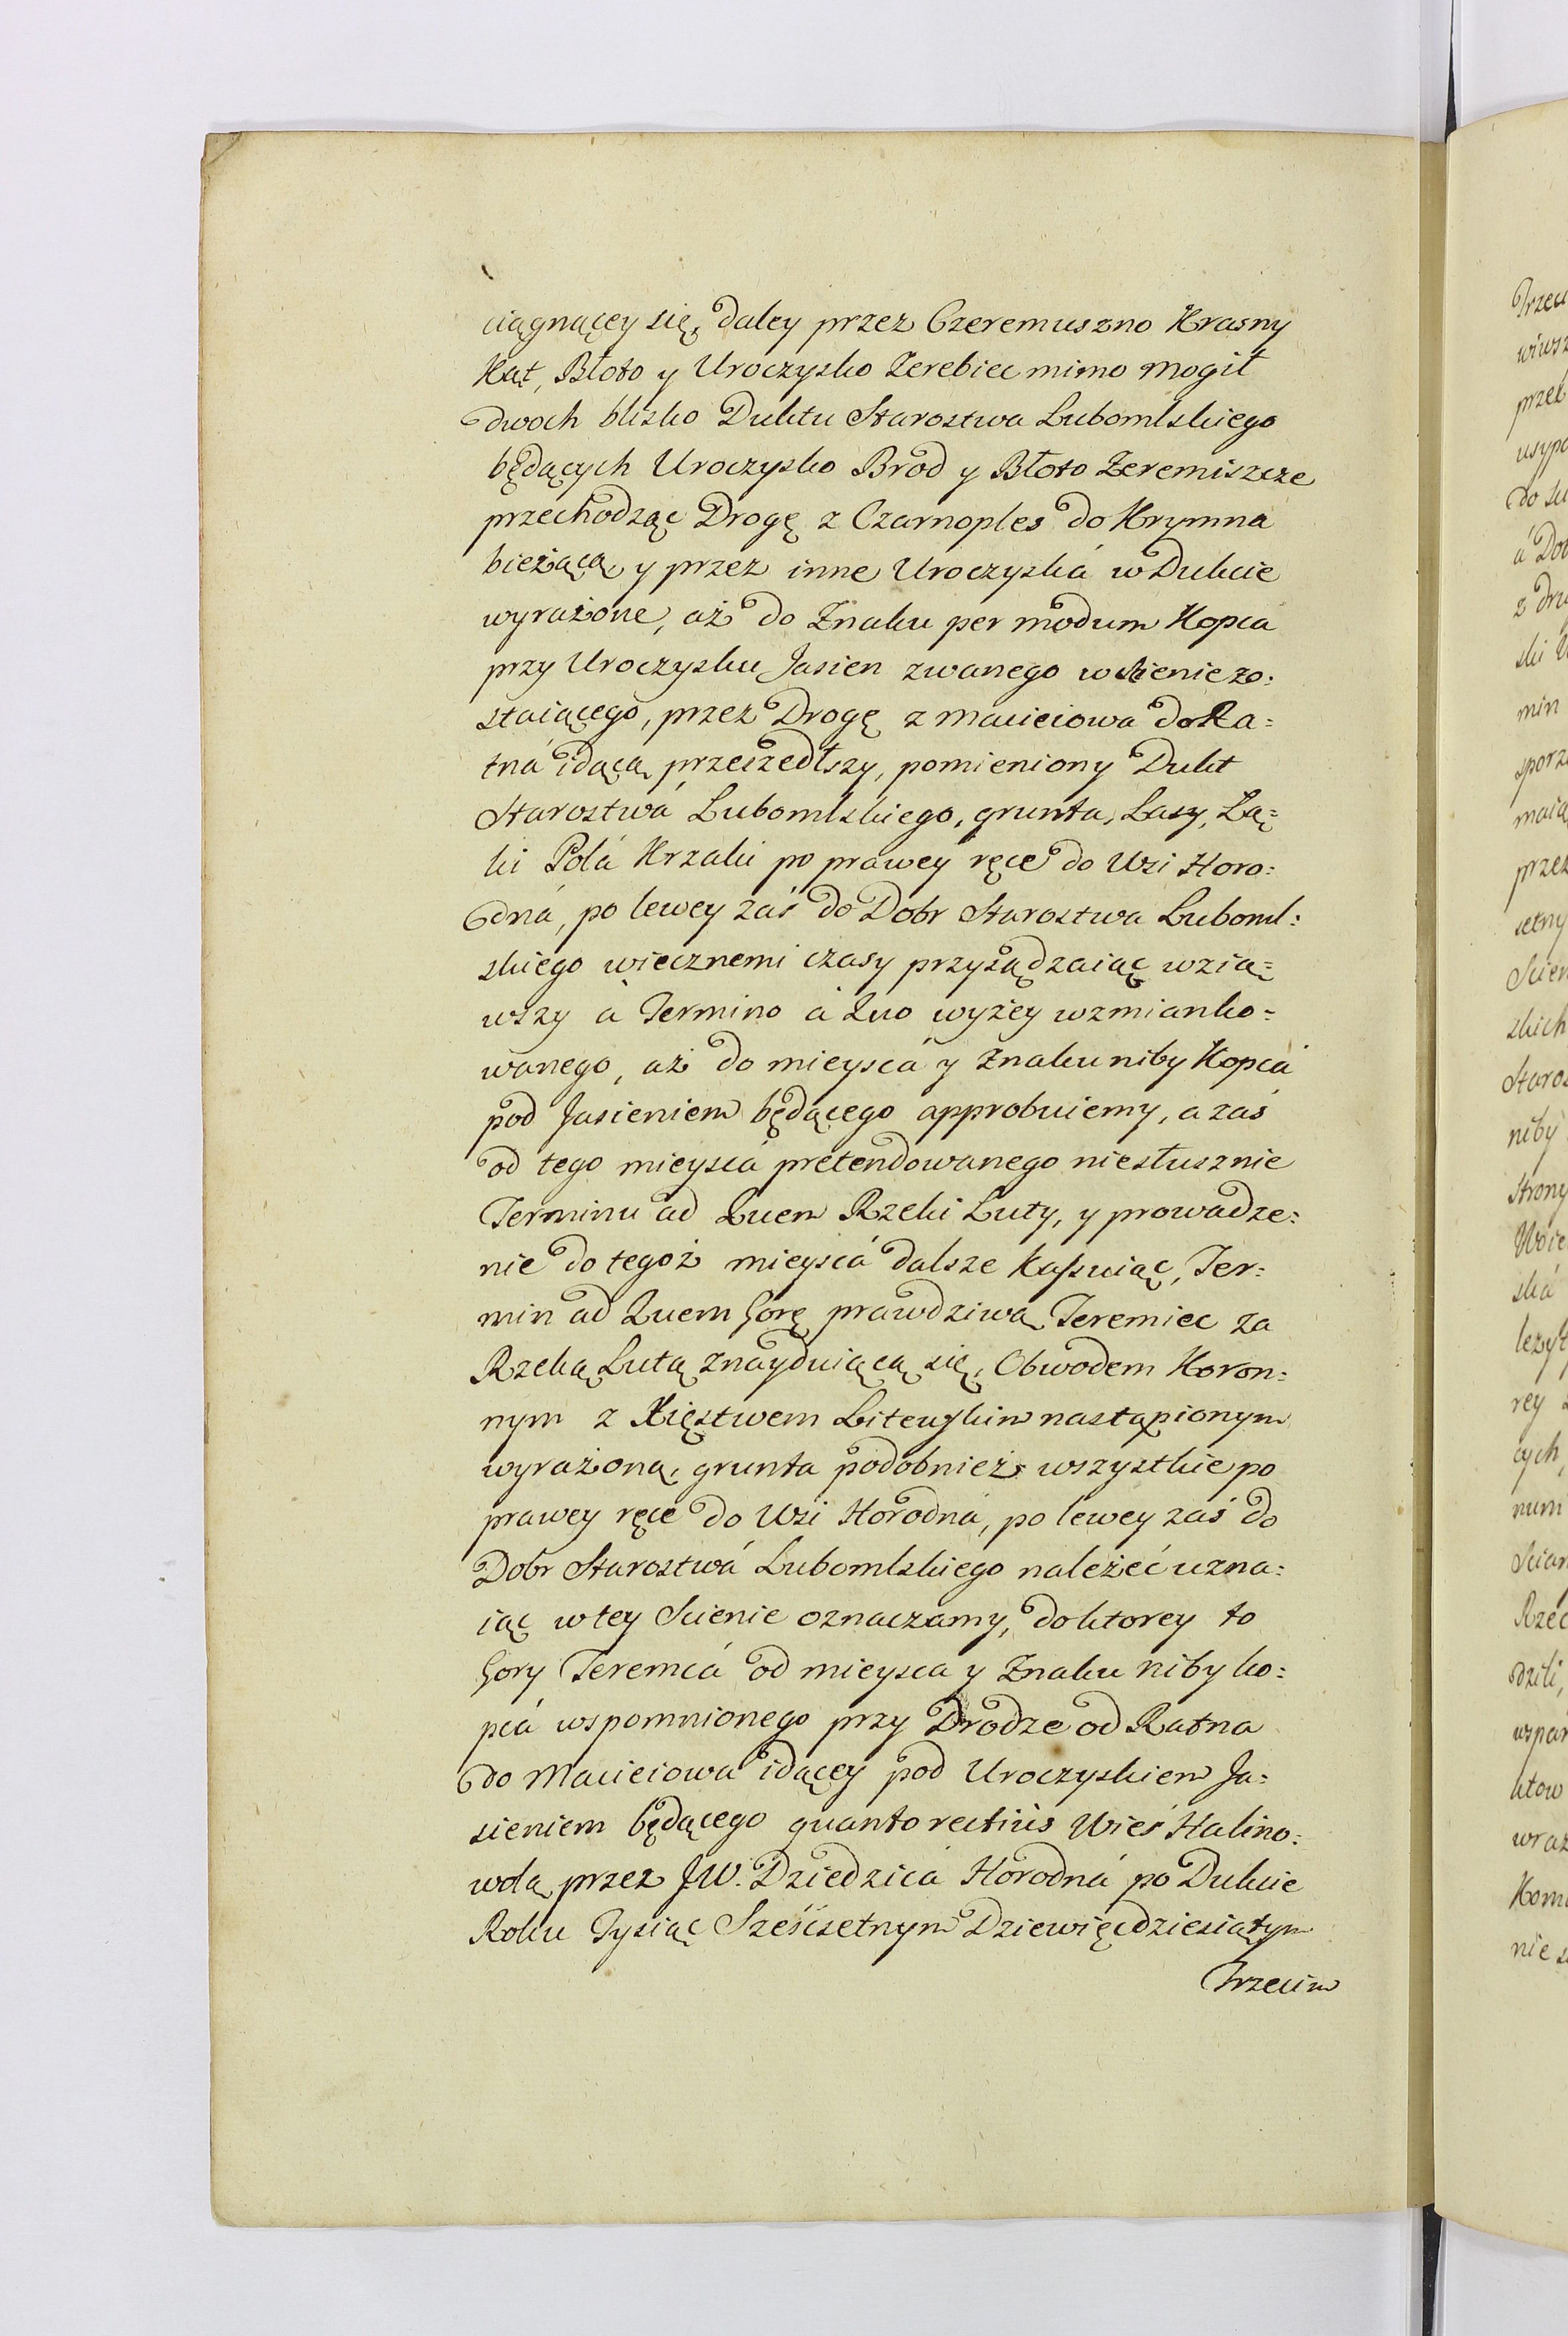 ciągnącey się, daley przez Czeremuszno Krasny
Kąt, Błoto y Uroczysko Zerebiec mimo mogił
dwoch blisko Duktu Starostwa Lubomlskiego
będących Uroczysko Brod y Błoto Zeremiszcze
przechodząc Drogę z Czarnoples do Krymna
bieżącą, y przez inne Uroczyská w Dukcie
wyrażone, aż do Znaku per modum Kopca
przy Uroczysku Jasien zwanego w Scienie zo:
staiącego, przez Drogę z Macieiowa do Ra=
tná idącą przeszedłszy, pomieniony Dukt
Starostwá Lubomlskiego, grunta, Lasy, Łą=
ki Polá Krzaki po prawey ręce do Wsi Horo:
dná, po lewey zaś do Dobr Starostwa Luboml:
skiego wiecznemi czasy przysądzaiąc wzią=
wszy à Termino à Quo wyżey wzmianko=
wanego, aż do mieyscá y Znaku niby Kopcá
pod Jasieniem będącego approbuiemy, a zaś
od tego mieyscá pretendowanego niesłusznie
Terminu ad Quem Rzeki Luty, y prowadze:
nie do tegoż mieyscá dalsze Kassuiąc, Ter:
min ad Quem Gorę prawdziwą Teremiec za
Rzeką Lutą znayduiącą się, Obwodem Koron:
nym z Xięstwem Litewskim nastąpionym
wyrażoną, grunta podobnież wszystkie po
prawey ręce do Wsi Horodná, po lewey zaś do
Dobr Starostwá Lubomlskiego należeć uzna:
iąc w tey Scienie oznaczamy, do ktorey to
Gory Teremcá od mieysca y Znaku niby ko:
pcá wspomnionego przy Drodze od Ratna
do Macieiowa idącey pod Uroczyskiem Ja:
sieniem będącego quanto rectiùs Wieś Halino:
wolą przez JW. Dziedzicá Horodná po Dukcie
Roku Tysiąc Sześćsetnym Dziewięćdziesiątym
Trzecim